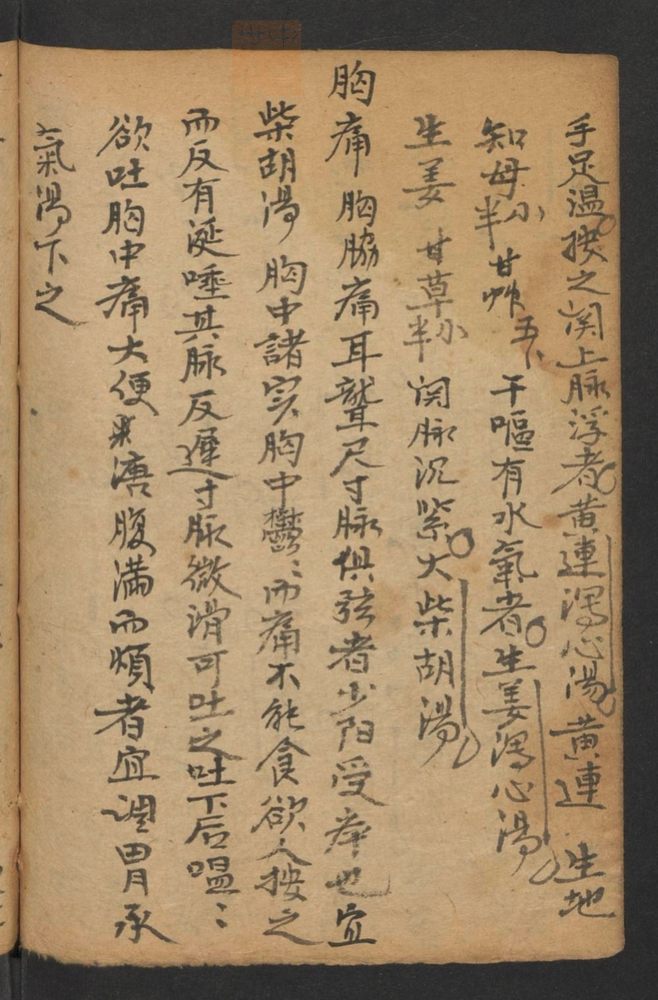 手足温按之関上脉浮者黄連瀉心湯黄連 生地
知母小半 甘艸五卜 干嘔有水氣者生姜瀉心湯
生姜 甘草小半 関脉沉紧大柴胡湯
胸痛 胸脇痛耳聾尺寸脉俱弦者少阳受病也宜
柴胡湯 胸中諸实胸中鬱〻而痛不能食欲人按之
而反有涎唾其脉反遲寸脉微滑可吐之吐下后嗢〻
欲吐胸中痛大便溏腹满而煩者宜调胃承
氣湯下之